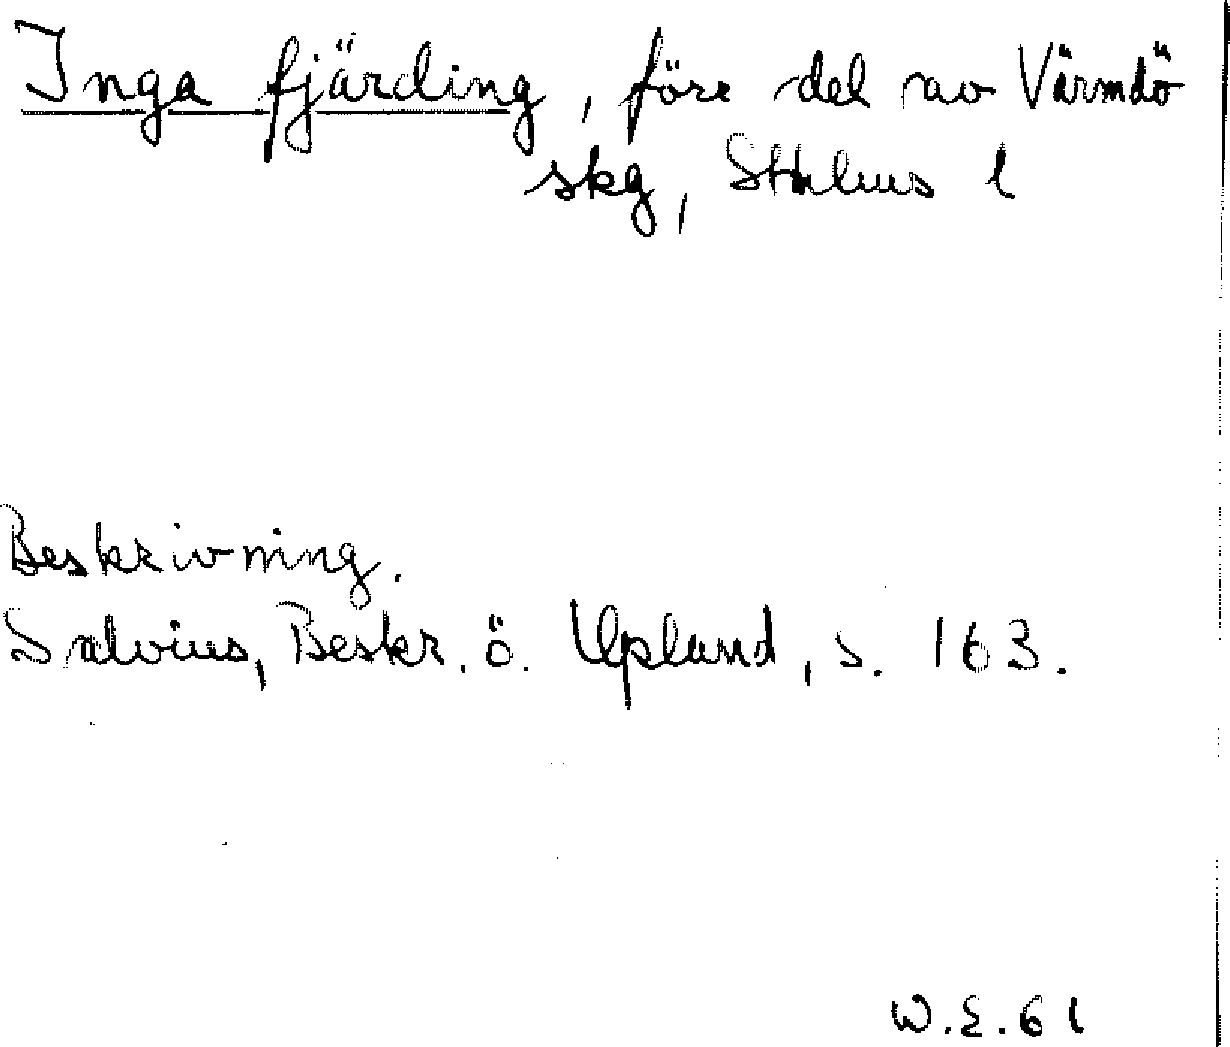 Inga fjärding, före del av Värmdö
skg, Sthlms l
Beskrivning.
Salvius, Beskr. ö. Upland, s. 163.
W.E. 61